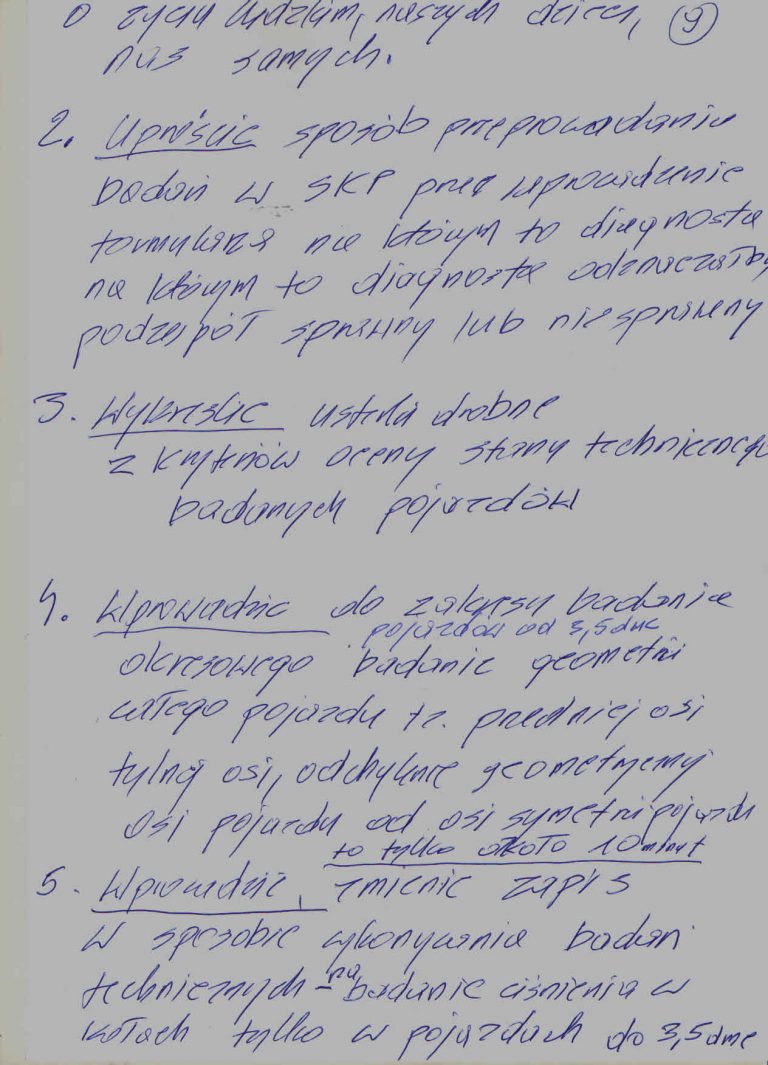 o życiu ludzkim, naszych dzieci, (9)
nas samych.
2. Uprościc sposób przeprowadzania
badań w SKP przez wprowadzenie
formularza na którym to diagnosta
na którym to diagnosta odznaczałby
podzespół sprawny lub niesprawny
3. Wykreslic usterki drobne
z kryteriów oceny stanu technicznego
badanych pojazdów
4. Wprowadzic do zakresu badania
pojazdów od 3,5 dmc
okresowego badanie geometrii
całego pojazdu tz. predniej osi
tylnej osi, odchylenie geometrycznej
osi pojazdu od osi symetrii pojazdu
to tylko około 10 minut
5. Wprowadzić, zmienic zapis
w sposobie wykonywania badań
technicznych - na badanie ciśnienia w
kołach tylko w pojazdach do 3,5 dmc